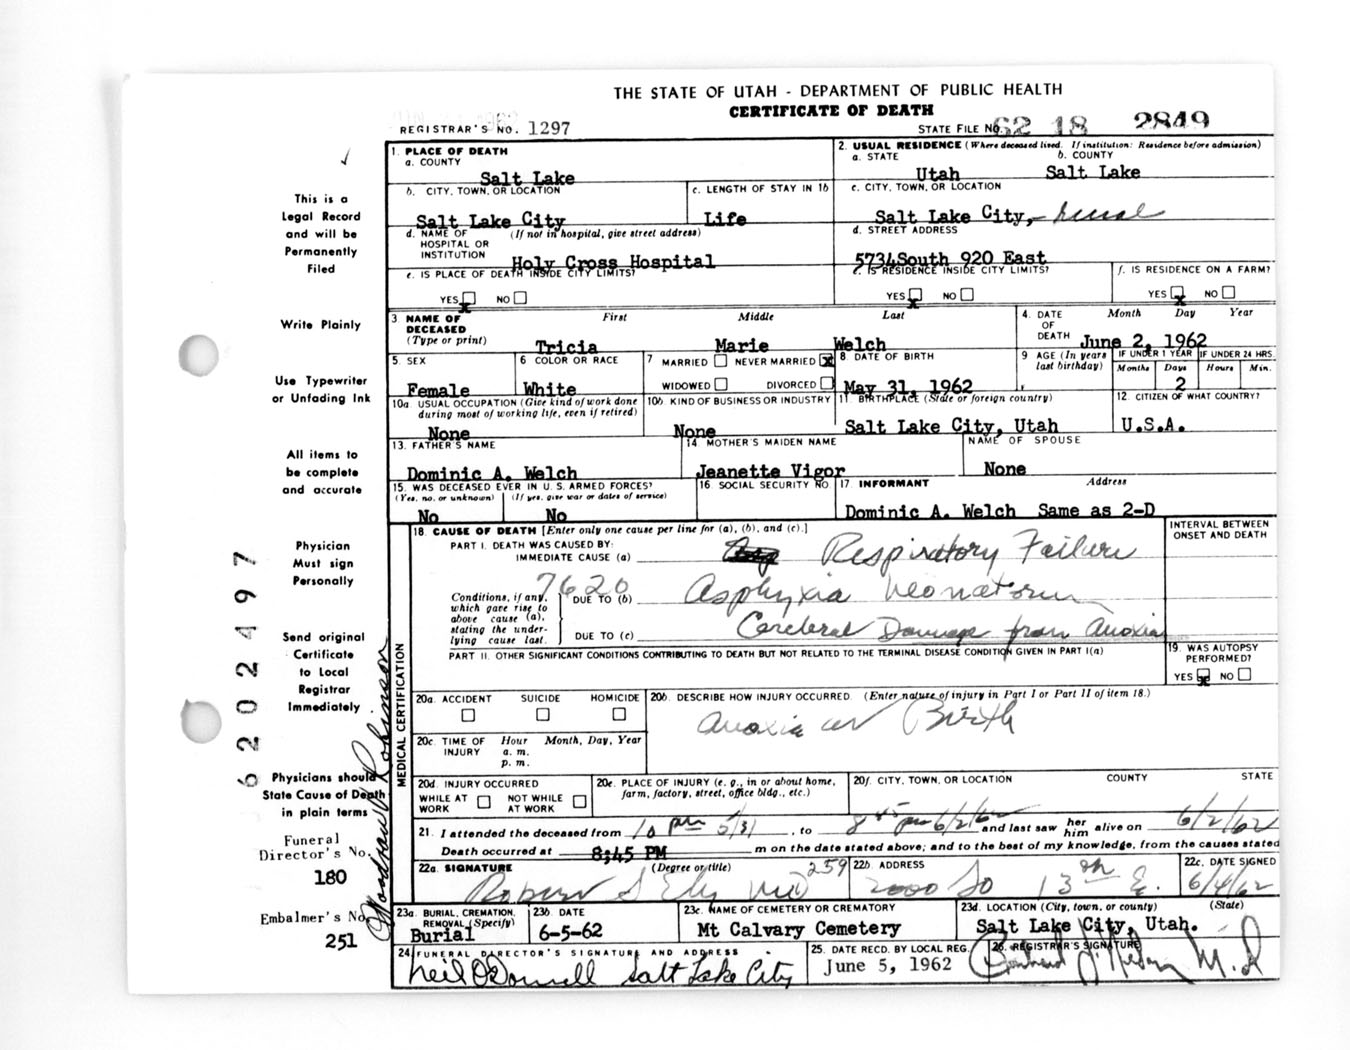 THE STATE OF UTAH - DEPARTMENT OF PUBLIC HEALTH
CERTIFICATE OF DEATH
REGISTRAR'S NO. 1297
STATE FILE NO. 62 18 2849
This is a
Legal Record
and will be
Permanently
Filed
Write Plainly
Use Typewriter
or Unfading Ink
All items to
be complete
and accurate
Physician
Must sign
Personally
Send original
Certificate
to Local
Registrar
Immediately
Physicians should
State Cause of Death
in plain terms
Funeral
Director's No.
180
Embalmer's No.
251
6202497
Woodrow Robinson
1. PLACE OF DEATH
a. COUNTY
Salt Lake
2. USUAL RESIDENCE (Where deceased lived. If institution: Residence before admission)
a. STATE b. COUNTY
Utah Salt Lake
b. CITY, TOWN, OR LOCATION
Salt Lake City
c. LENGTH OF STAY IN 1b
Life
c. CITY, TOWN, OR LOCATION
Salt Lake City, - rural
d. NAME OF (If not in hospital, give street address)
HOSPITAL OR
INSTITUTION
Holy Cross Hospital
d. STREET ADDRESS
5734 South 920 East
e. IS PLACE OF DEATH INSIDE CITY LIMITS?
YES x NO
e. IS RESIDENCE INSIDE CITY LIMITS?
YES x NO
f. IS RESIDENCE ON A FARM?
YES x NO
3. NAME OF DECEASED First Middle Last
(Type or print)
Tricia Marie Welch
4. DATE OF DEATH Month Day Year
June 2, 1962
5. SEX
Female
6 COLOR OR RACE
White
7 MARRIED NEVER MARRIED x
WIDOWED DIVORCED
8 DATE OF BIRTH
May 31, 1962
9 AGE (In years last birthday)
IF UNDER 1 YEAR IF UNDER 24 HRS.
Months Days Hours Min.
2
10a. USUAL OCCUPATION (Give kind of work done
during most of working life, even if retired)
None
10b. KIND OF BUSINESS OR INDUSTRY
None
11 BIRTHPLACE (State or foreign country)
Salt Lake City, Utah
12. CITIZEN OF WHAT COUNTRY?
U.S.A.
13. FATHER'S NAME
Dominic A. Welch
14 MOTHER'S MAIDEN NAME
Jeanette Vigor
NAME OF SPOUSE
None
15. WAS DECEASED EVER IN U.S. ARMED FORCES?
(Yes, no, or unknown) (If yes, give war or dates of service)
No No
16 SOCIAL SECURITY NO
17. INFORMANT Address
Dominic A. Welch Same as 2-D
MEDICAL CERTIFICATION
18. CAUSE OF DEATH [Enter only one cause per line for (a), (b), and (c).]
INTERVAL BETWEEN
ONSET AND DEATH
PART I. DEATH WAS CAUSED BY:
IMMEDIATE CAUSE (a) Respiratory Failure
7620
Conditions, if any,
which gave rise to
above cause (a),
stating the under-
lying cause last.
DUE TO (b) Asphyxia Neonatorum
DUE TO (c) Cerebral Damage from Anoxia
PART II. OTHER SIGNIFICANT CONDITIONS CONTRIBUTING TO DEATH BUT NOT RELATED TO THE TERMINAL DISEASE CONDITION GIVEN IN PART I(a)
19. WAS AUTOPSY
PERFORMED?
YES x NO
20a. ACCIDENT SUICIDE HOMICIDE
20b. DESCRIBE HOW INJURY OCCURRED. (Enter nature of injury in Part I or Part II of item 18.)
Anoxia at Birth
20c. TIME OF INJURY Hour Month, Day, Year
a. m.
p. m.
20d. INJURY OCCURRED
WHILE AT WORK NOT WHILE AT WORK
20e. PLACE OF INJURY (e. g., in or about home,
farm, factory, street, office bldg., etc.)
20f. CITY, TOWN, OR LOCATION COUNTY STATE
21. I attended the deceased from 10 pm 5/31, to 8 45 pm 6/2/62 and last saw her him alive on 6/2/62
Death occurred at 8;45 PM m on the date stated above; and to the best of my knowledge, from the causes stated
22a. SIGNATURE (Degree or title) 259
Robert S Ely MD
22b. ADDRESS
2000 So 13th E.
22c. DATE SIGNED
6/4/62
23a. BURIAL, CREMATION,
REMOVAL (Specify)
Burial
23b. DATE
6-5-62
23c. NAME OF CEMETERY OR CREMATORY
Mt Calvary Cemetery
23d. LOCATION (City, town, or county) (State)
Salt Lake City, Utah.
24. FUNERAL DIRECTOR'S SIGNATURE AND ADDRESS
Neil O'Donnell Salt Lake City
25. DATE RECD. BY LOCAL REG.
June 5, 1962
26. REGISTRAR'S SIGNATURE
M.D.